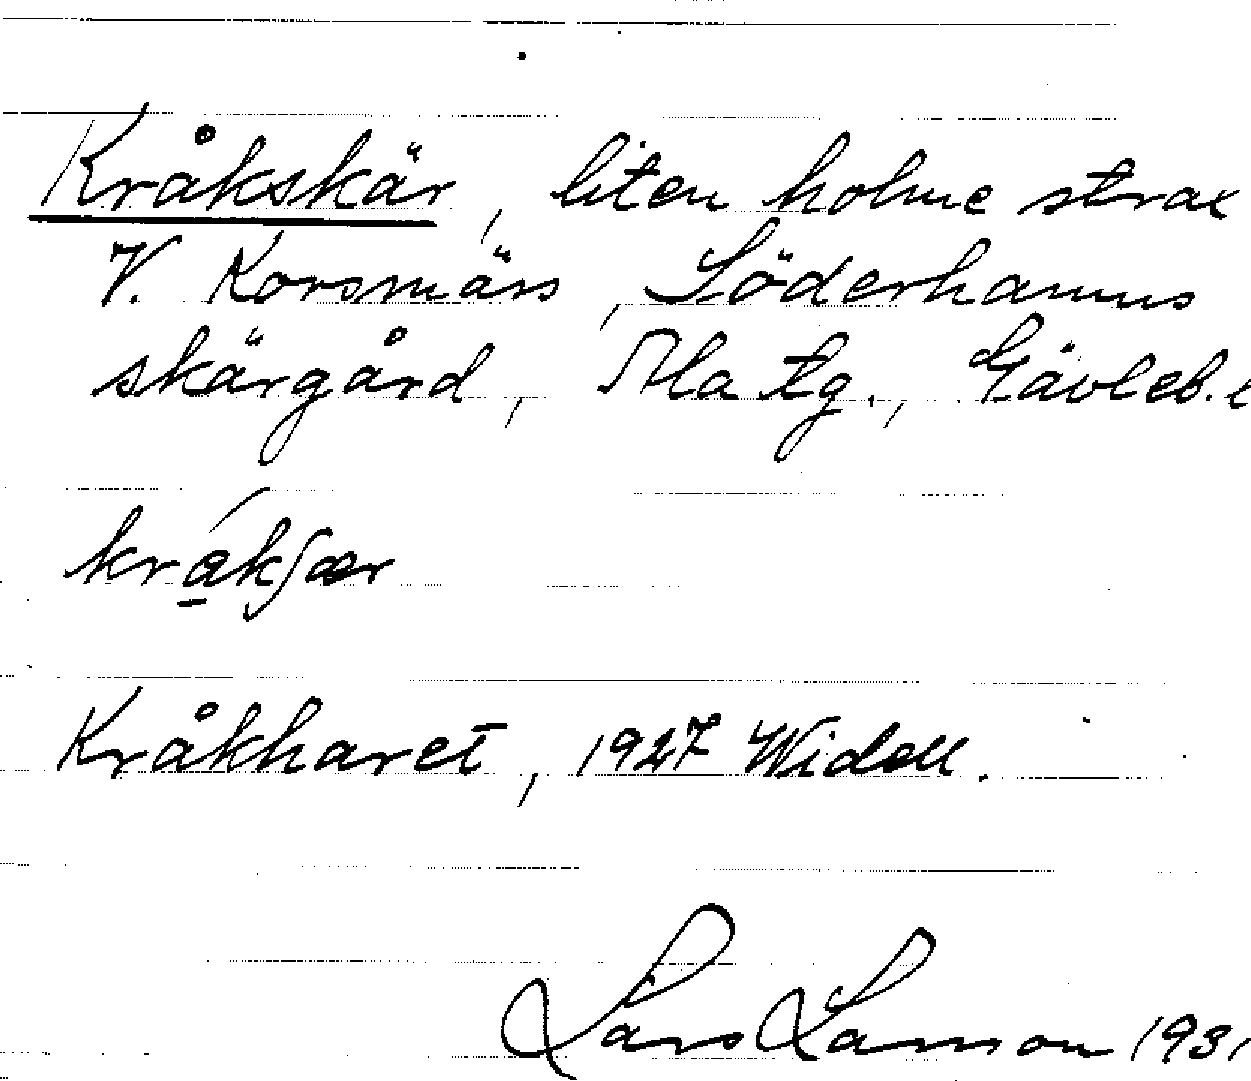 Kråkskär, liten holme strax
V. Korsmärs, Söderhamns
skärgård, Ala tg., Gävleb. l
krákʃær
Kråkharet, 1927 Widell.
Lars Larsson 1931